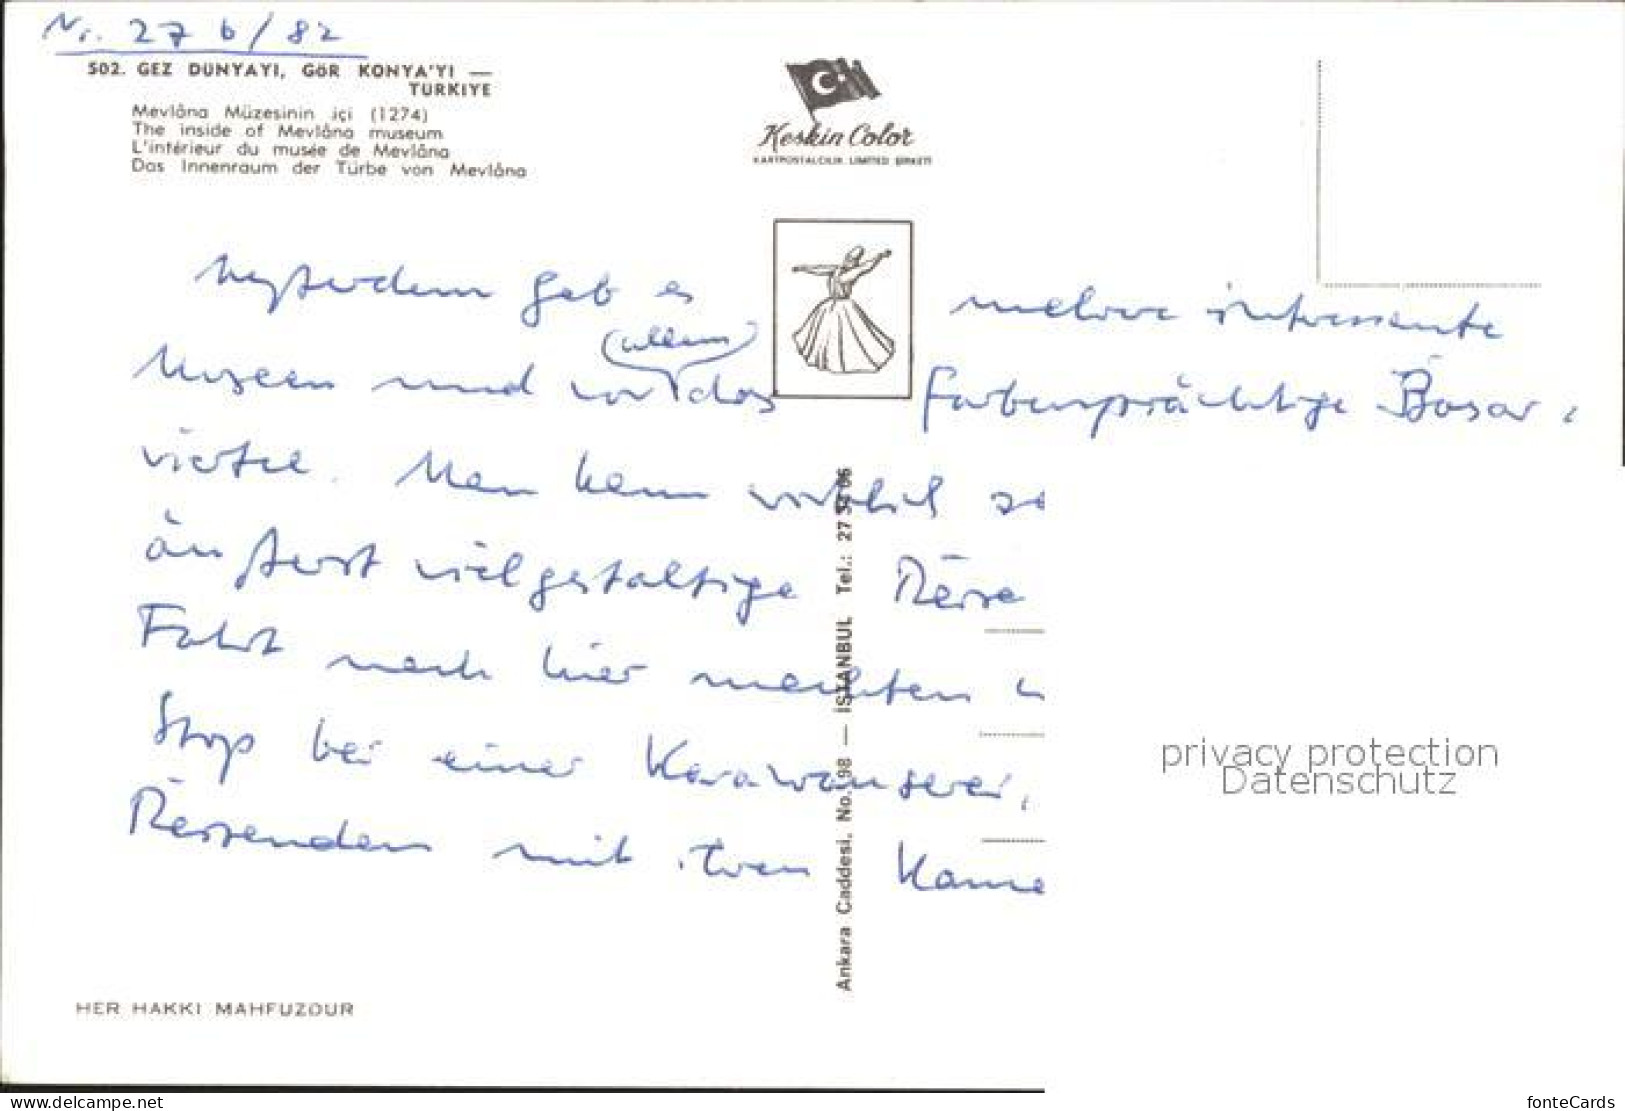 Nr. 27 b/82
502. GEZ DÜNYAYI, GÖR KONYA'YI —
TÜRKİYE
Mevlâna Müzesinin içi (1274)
The inside of Mevlâna museum
L'intérieur du musée de Mevlâna
Das Innenraum der Türbe von Mevlâna
Keskin Color
KARTPOSTALCILIK LIMITED ŞİRKETİ
Ausserdem gab es mehrere interessante
(allem)
Museen und vor das farbenprächtige Basar-
viertel. Man kann wirklich
äußerst vielgestaltige Reise
Fahrt nach hier machten
Stop bei einer Karawanserei,
Reisenden mit ihren Kame
Ankara Caddesi, No. 98 — İSTANBUL Tel.: 27
HER HAKKI MAHFUZDUR
privacy protection
Datenschutz
www.delcampe.net
fonteCards